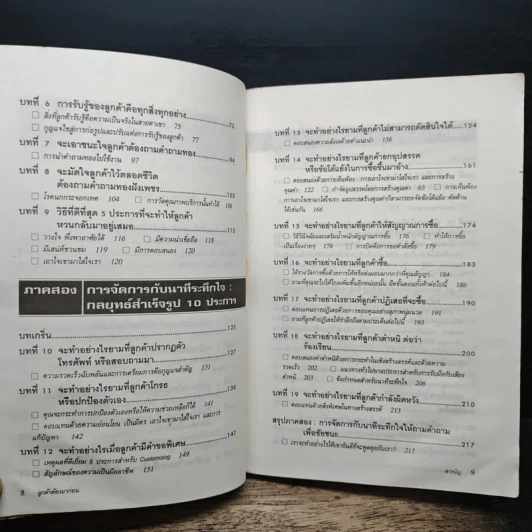 บทที่ 6 การรับรู้ของลูกค้าคือทุกสิ่งทุกอย่าง
☐ สิ่งที่ลูกค้ารับรู้คือความเป็นจริงในสายตาเขา 75
☐ กุญแจไขสู่การก่อรูปและปรับแต่งการรับรู้ของลูกค้า 77
บทที่ 7 จะเอาชนะใจลูกค้าต้องถามคำถามทอง 94
☐ การนำคำถามทองไปใช้งาน 97
บทที่ 8 จะมัดใจลูกค้าไว้ตลอดชีวิต
ต้องถามคำถามทองฝังเพชร 104
☐ การวัดคุณภาพบริการนั้นทำได้ 108
บทที่ 9 วิธีที่ดีที่สุด 5 ประการที่จะทำให้ลูกค้า
หวนกลับมาอยู่เสมอ
☐ วางใจ พึ่งพาอาศัยได้ ☐ มีความน่าเชื่อถือ 118
☐ มีเสน่ห์ชวนชม 119 ☐ มีการตอบสนอง
☐ เอาใจเขามาใส่ใจเรา 120
ภาคสอง การจัดการกับนาทีระทึกใจ :
กลยุทธ์สำเร็จรูป 10 ประการ
บทเกริ่น 125
บทที่ 10 จะทำอย่างไรยามที่ลูกค้าปรากฏตัว
โทรศัพท์ หรือสอบถามมา
☐ ความรวดเร็วฉับพลันและการเตรียมการคือกุญแจสำคัญ 131
บทที่ 11 จะทำอย่างไรยามที่ลูกค้าโกรธ
หรือปกป้องตัวเอง
☐ คุณจะกระทำการปกป้องตัวเองหรือให้ความช่วยเหลือก็ได้ 141
☐ ตอบแทนด้วยความอ่อนโยน เป็นมิตร เอาใจเขามาใส่ใจเรา และการ
แก้ปัญหา 142
บทที่ 12 จะทำอย่างไรเมื่อลูกค้ามีคำขอพิเศษ 147
☐ เหตุผลที่ดีเยี่ยม 5 ประการสำหรับ Customizing 149
☐ สัญลักษณ์ของความเป็นมืออาชีพ 151
8 ลูกค้าต้องมาก่อน
บทที่ 13 จะทำอย่างไรยามที่ลูกค้าไม่สามารถตัดสินใจได้ 154
☐ ตอบสนองความลังเลด้วยคำแนะนำ 156
บทที่ 14 จะทำอย่างไรยามที่ลูกค้ายกอุปสรรค
หรือข้อโต้แย้งในการซื้อขึ้นมาอ้าง 161
บทที่ 15 จะทำอย่างไรยามที่ลูกค้าให้สัญญาณการซื้อ 174
บทที่ 16 จะทำอย่างไรยามที่ลูกค้าซื้อ 182
บทที่ 17 จะทำอย่างไรยามที่ลูกค้าปฏิเสธที่จะซื้อ 190
☐ ตอบแทนการปฏิเสธด้วยการขอบคุณอย่างสุภาพนุ่มนวล
บทที่ 18 จะทำอย่างไรยามที่ลูกค้าตำหนิ ต่อว่า
ร้องเรียน 200
บทที่ 19 จะทำอย่างไรยามที่ลูกค้ากำลังผิดหวัง 207
สรุปภาคสอง : การจัดการกับนาทีระทึกใจให้ถามคำถาม
เพื่อชัยชนะ 217
สารบัญ 9